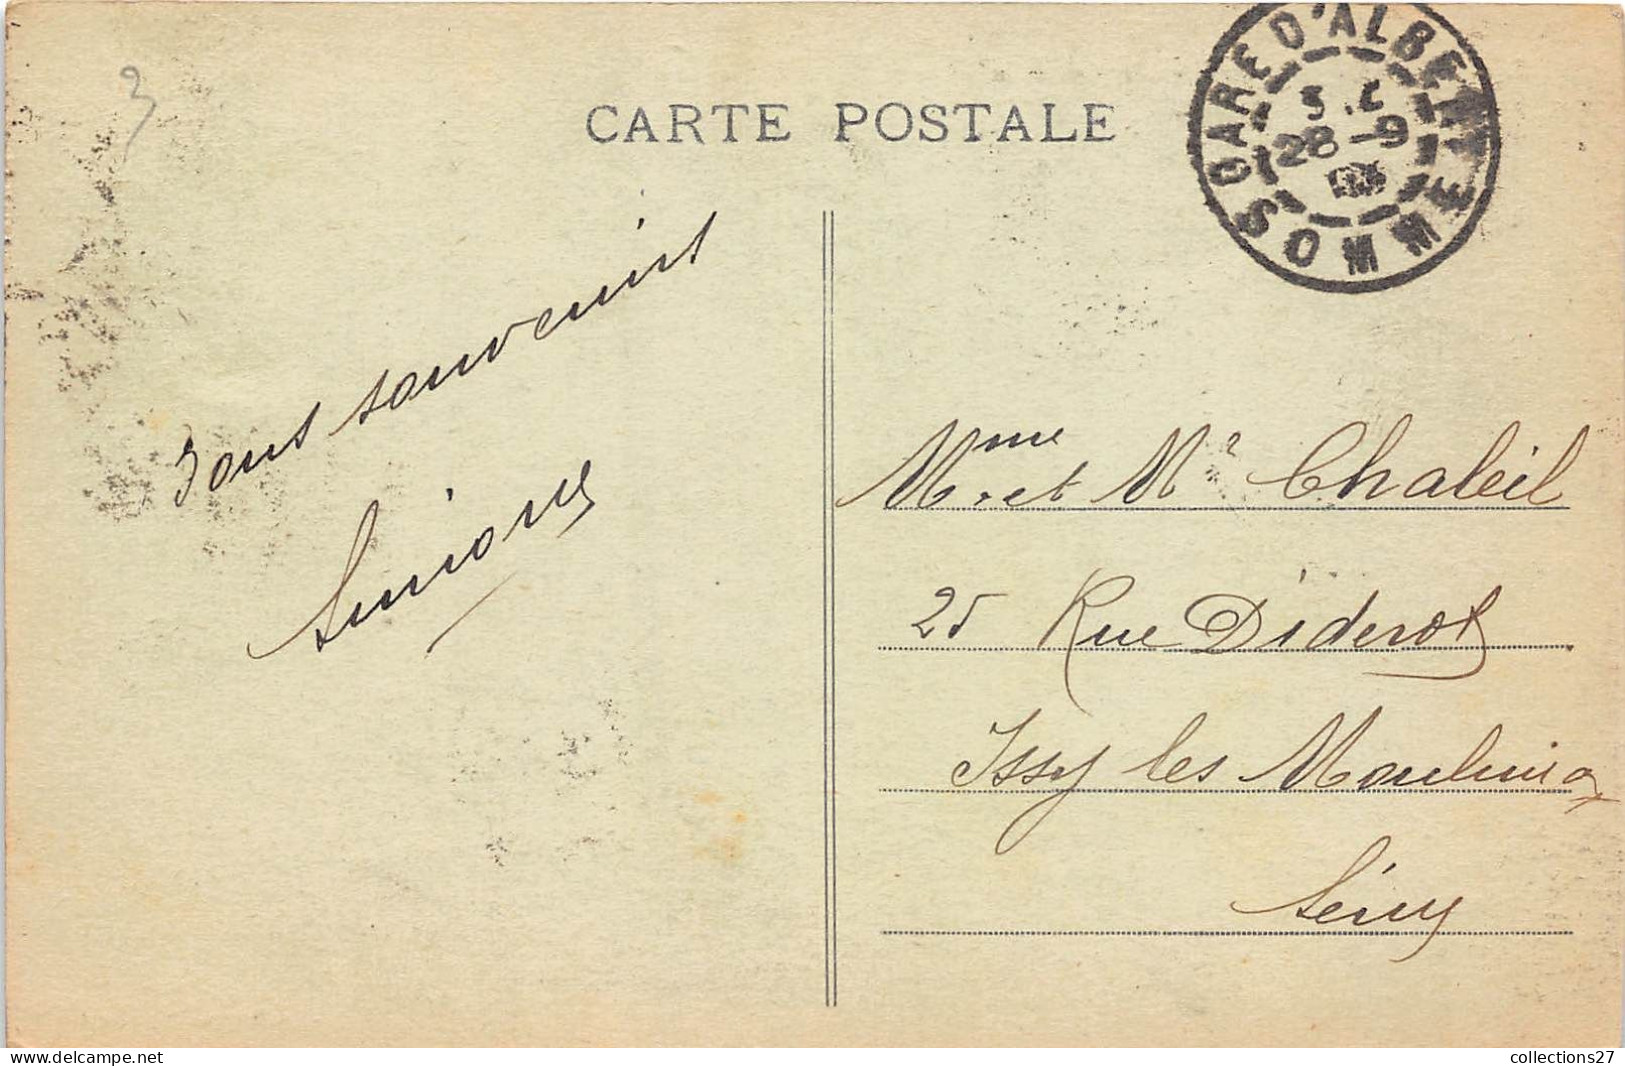 3
CARTE POSTALE
GARE D'ALBERT SOMME
28-9
Bons souvenirs
Mme et Mr Chaleil
25 Rue Diderot
Issy les Moulineax
Seine
delcampe.net
collections27